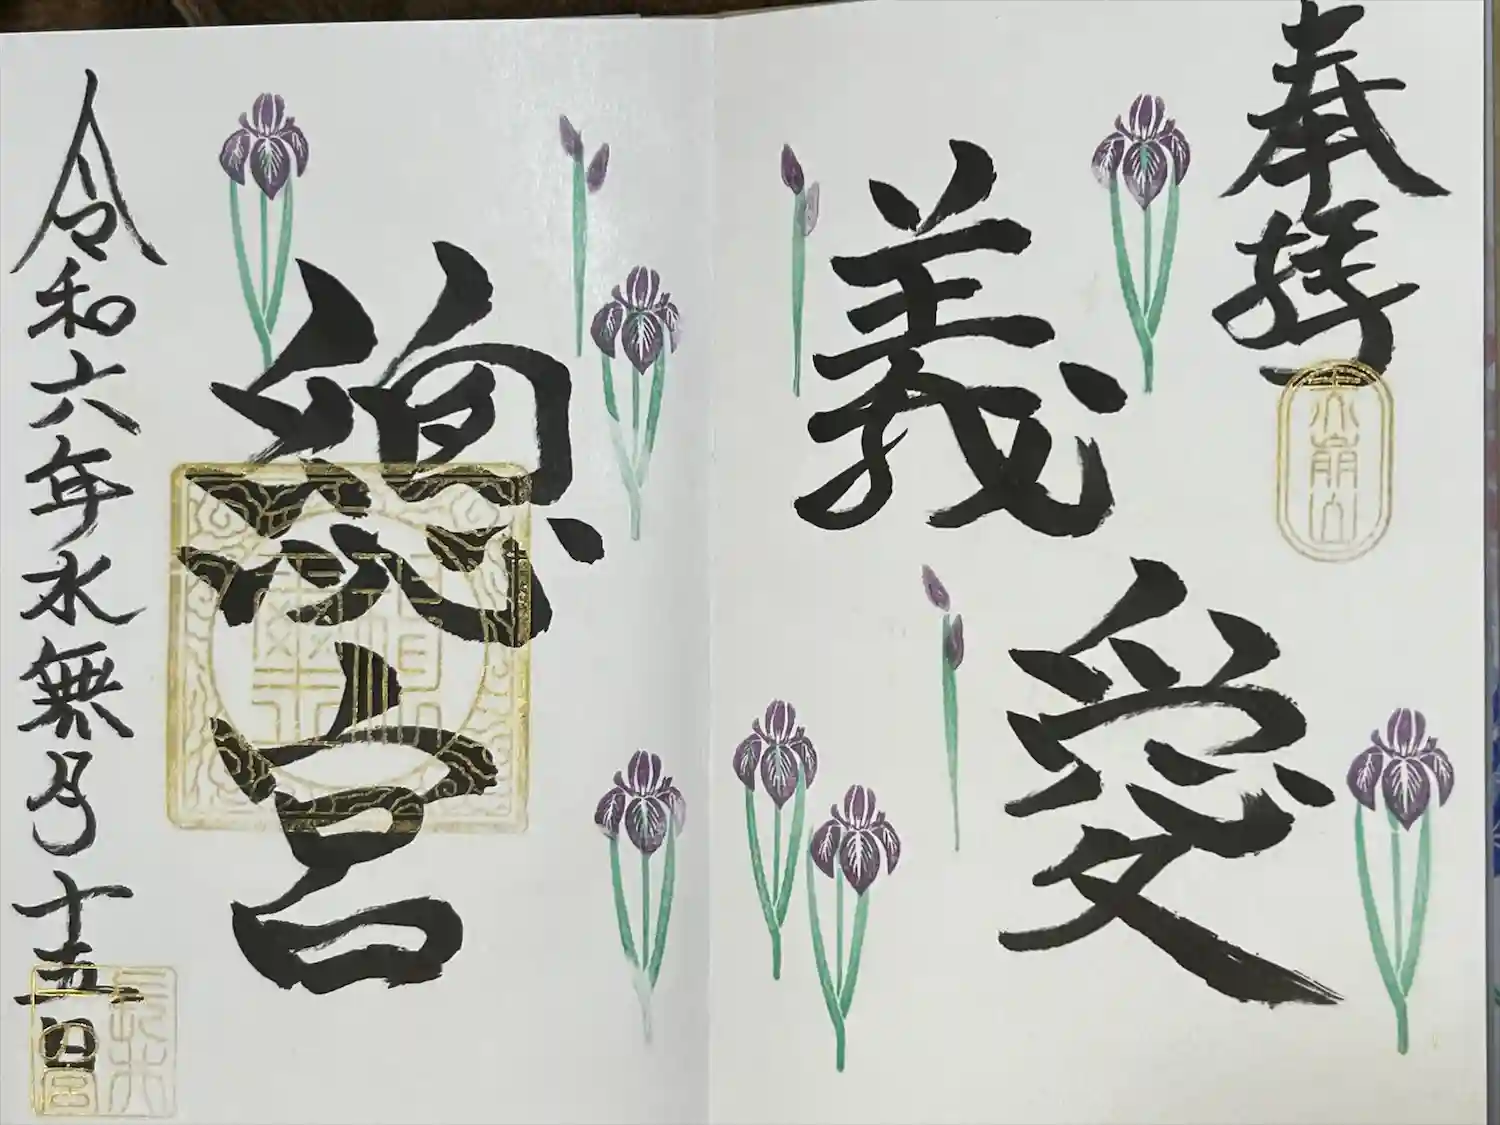 奉拝
義愛
總宮
令和六年水無月十五日